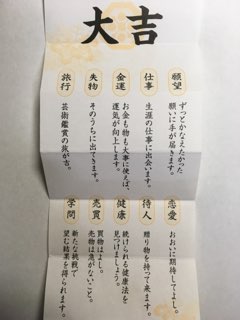 大吉
願望
ずっとかなえたかった
願いに手が届きます。
仕事
生涯の仕事に出会います。
金運
お金も物も大事に使えば、
運気が向上します。
失物
そのうちに出てきます。
旅行
芸術鑑賞の旅が吉。
恋愛
おおいに期待してよし。
待人
贈り物を持って来ます。
健康
続けられる健康法を
見つけましょう。
売買
買物はよし。
売物は急がないこと。
学問
新たな挑戦で
望む結果を得られます。